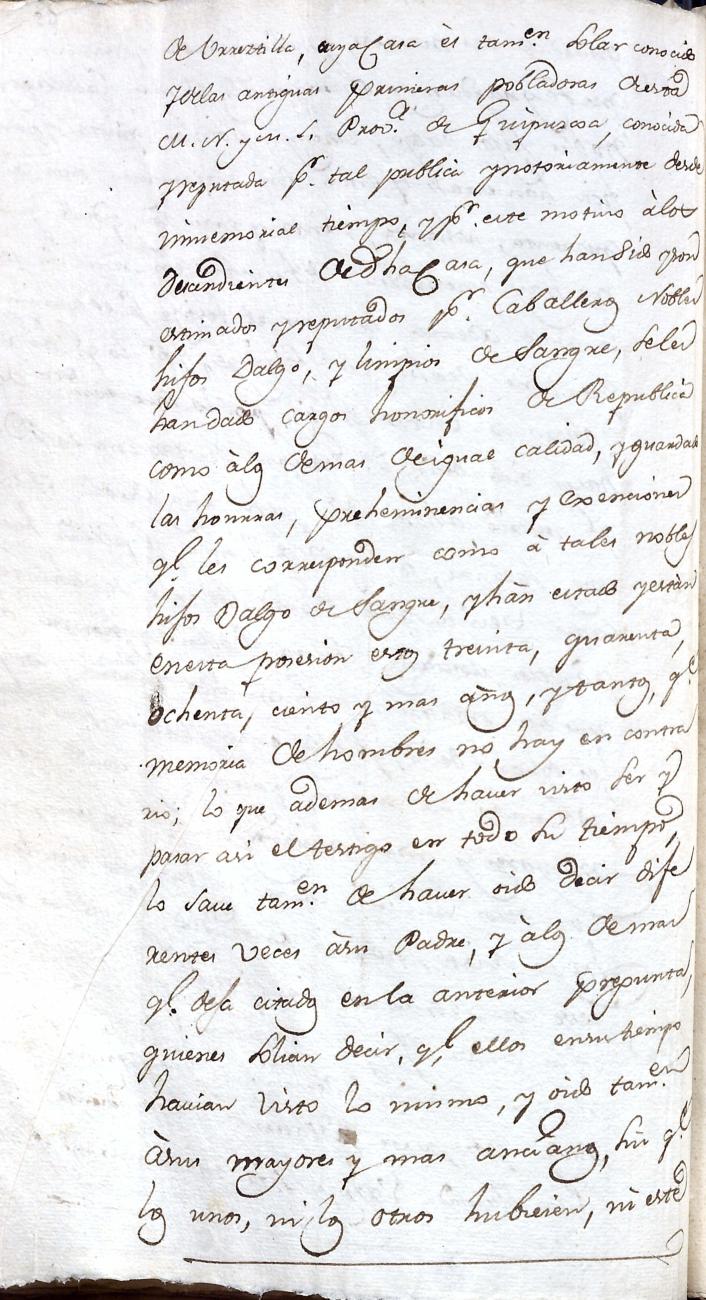 de Urreztilla, cuya Casa ès tam.en Solar conocido
y de las antiguas Primeras pobladoras de esta
M. N. y M. L. Prov.a de Guipuzcoa, conocida
y reputada p.r tal publica y notoriamente desde
inmemorial tiempo, y p.r este motivo à los
desendientes de dha Casa, que han Sido y son
estimados y reputados p.r Caballeros Nobles
hijos Dalgo, y limpios de Sangre, seles
han dado cargos honorificos de Republica
como àlos demas de igual calidad, y guardado
las honrras, preheminencias y exenciones
q.e les corresponden como à tales nobles
hijos Dalgo de Sangre, y hàn estado y estàn
en esta posesion estos treinta, quarenta,
ochenta, ciento y mas años, y tantos, q.e
memoria de hombres no hay en contra
rio; lo que ademas de haver visto ser y
pasar asi el testigo en todo su tiempo,
lo save tam.en de haver oido decir dife
rentes veces àsu Padre, y àlos demas
q.e deja citados en la anterior pregunta,
quienes solian decir, q.e ellos en su tiempo
havian visto lo mismo, y oido tam.en
àsus mayores y mas ancianos, sin q.e
los unos, ni los otros hubiesen, ni este